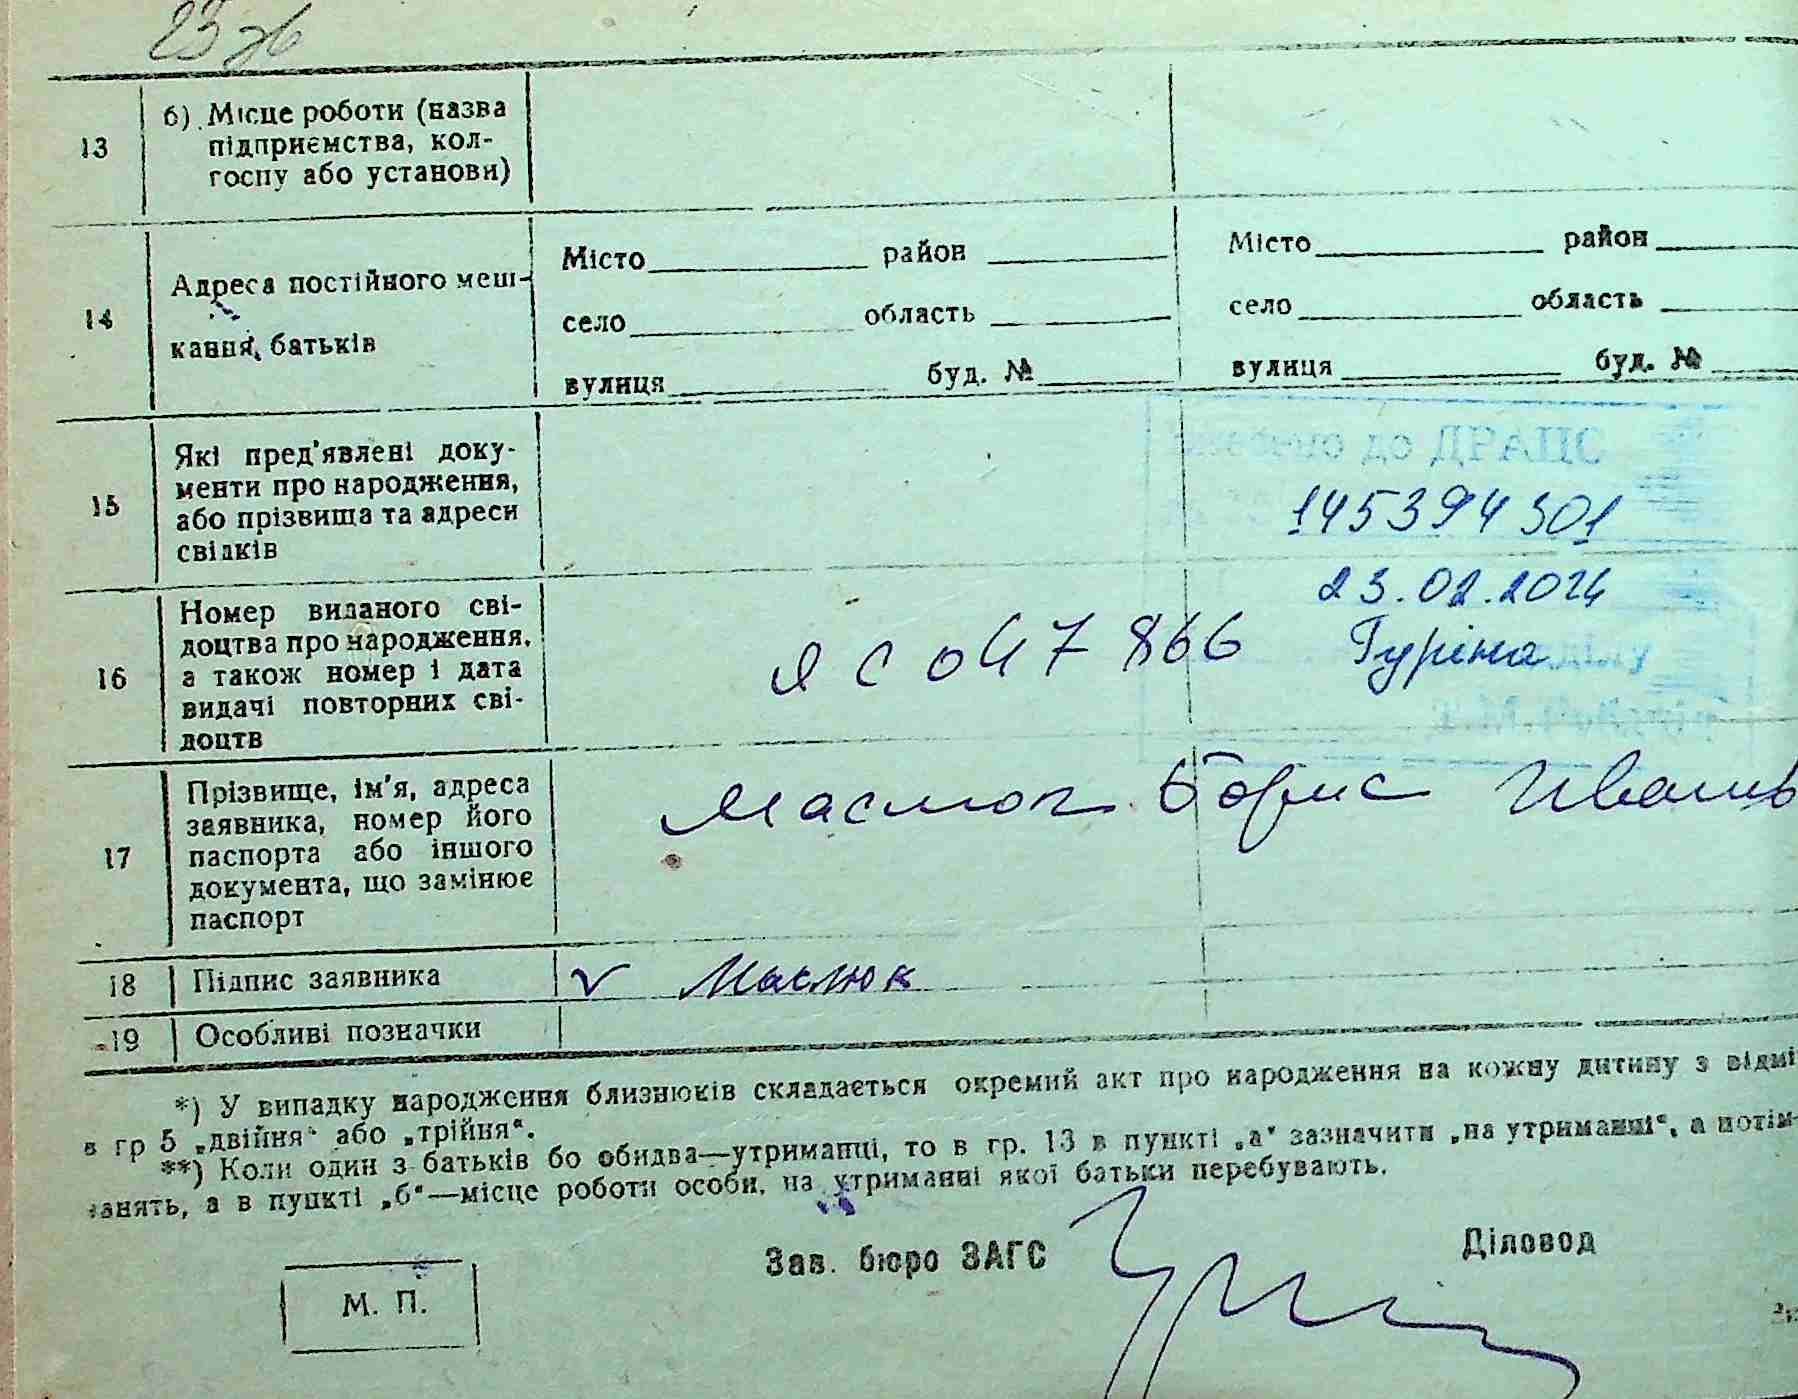 13
б) Місце роботи (назва
підприємства, кол-
госпу або установи)
14
Адреса постійного меш-
кання батьків
Місто район
село область
вулиця буд. №
Місто район
село область
вулиця буд. №
15
Які пред'явлені доку-
менти про народження,
або прізвища та адреси
свідків
до ДРАЦС
145394301
16
Номер виданого сві-
доцтва про народження,
а також номер і дата
видачі повторних сві-
доцтв
ЯС 047866
23.02.2024
Гуріна
17
Прізвище, ім'я, адреса
заявника, номер його
паспорта або іншого
документа, що замінює
паспорт
Маслюк Борис Иванов
18
Підпис заявника
v Маслюк
19
Особливі позначки
*) У випадку народження близнюків складається окремий акт про народження на кожну дитину з відмі
в гр 5 „двійня“ або „трійня“.
**) Коли один з батьків бо обидва—утриманці, то в гр. 13 в пункті „а“ зазначити „на утриманні“, а потім
занять, а в пункті „б“—місце роботи особи, на утриманні якої батьки перебувають.
Зав. бюро ЗАГС
Діловод
М. П.